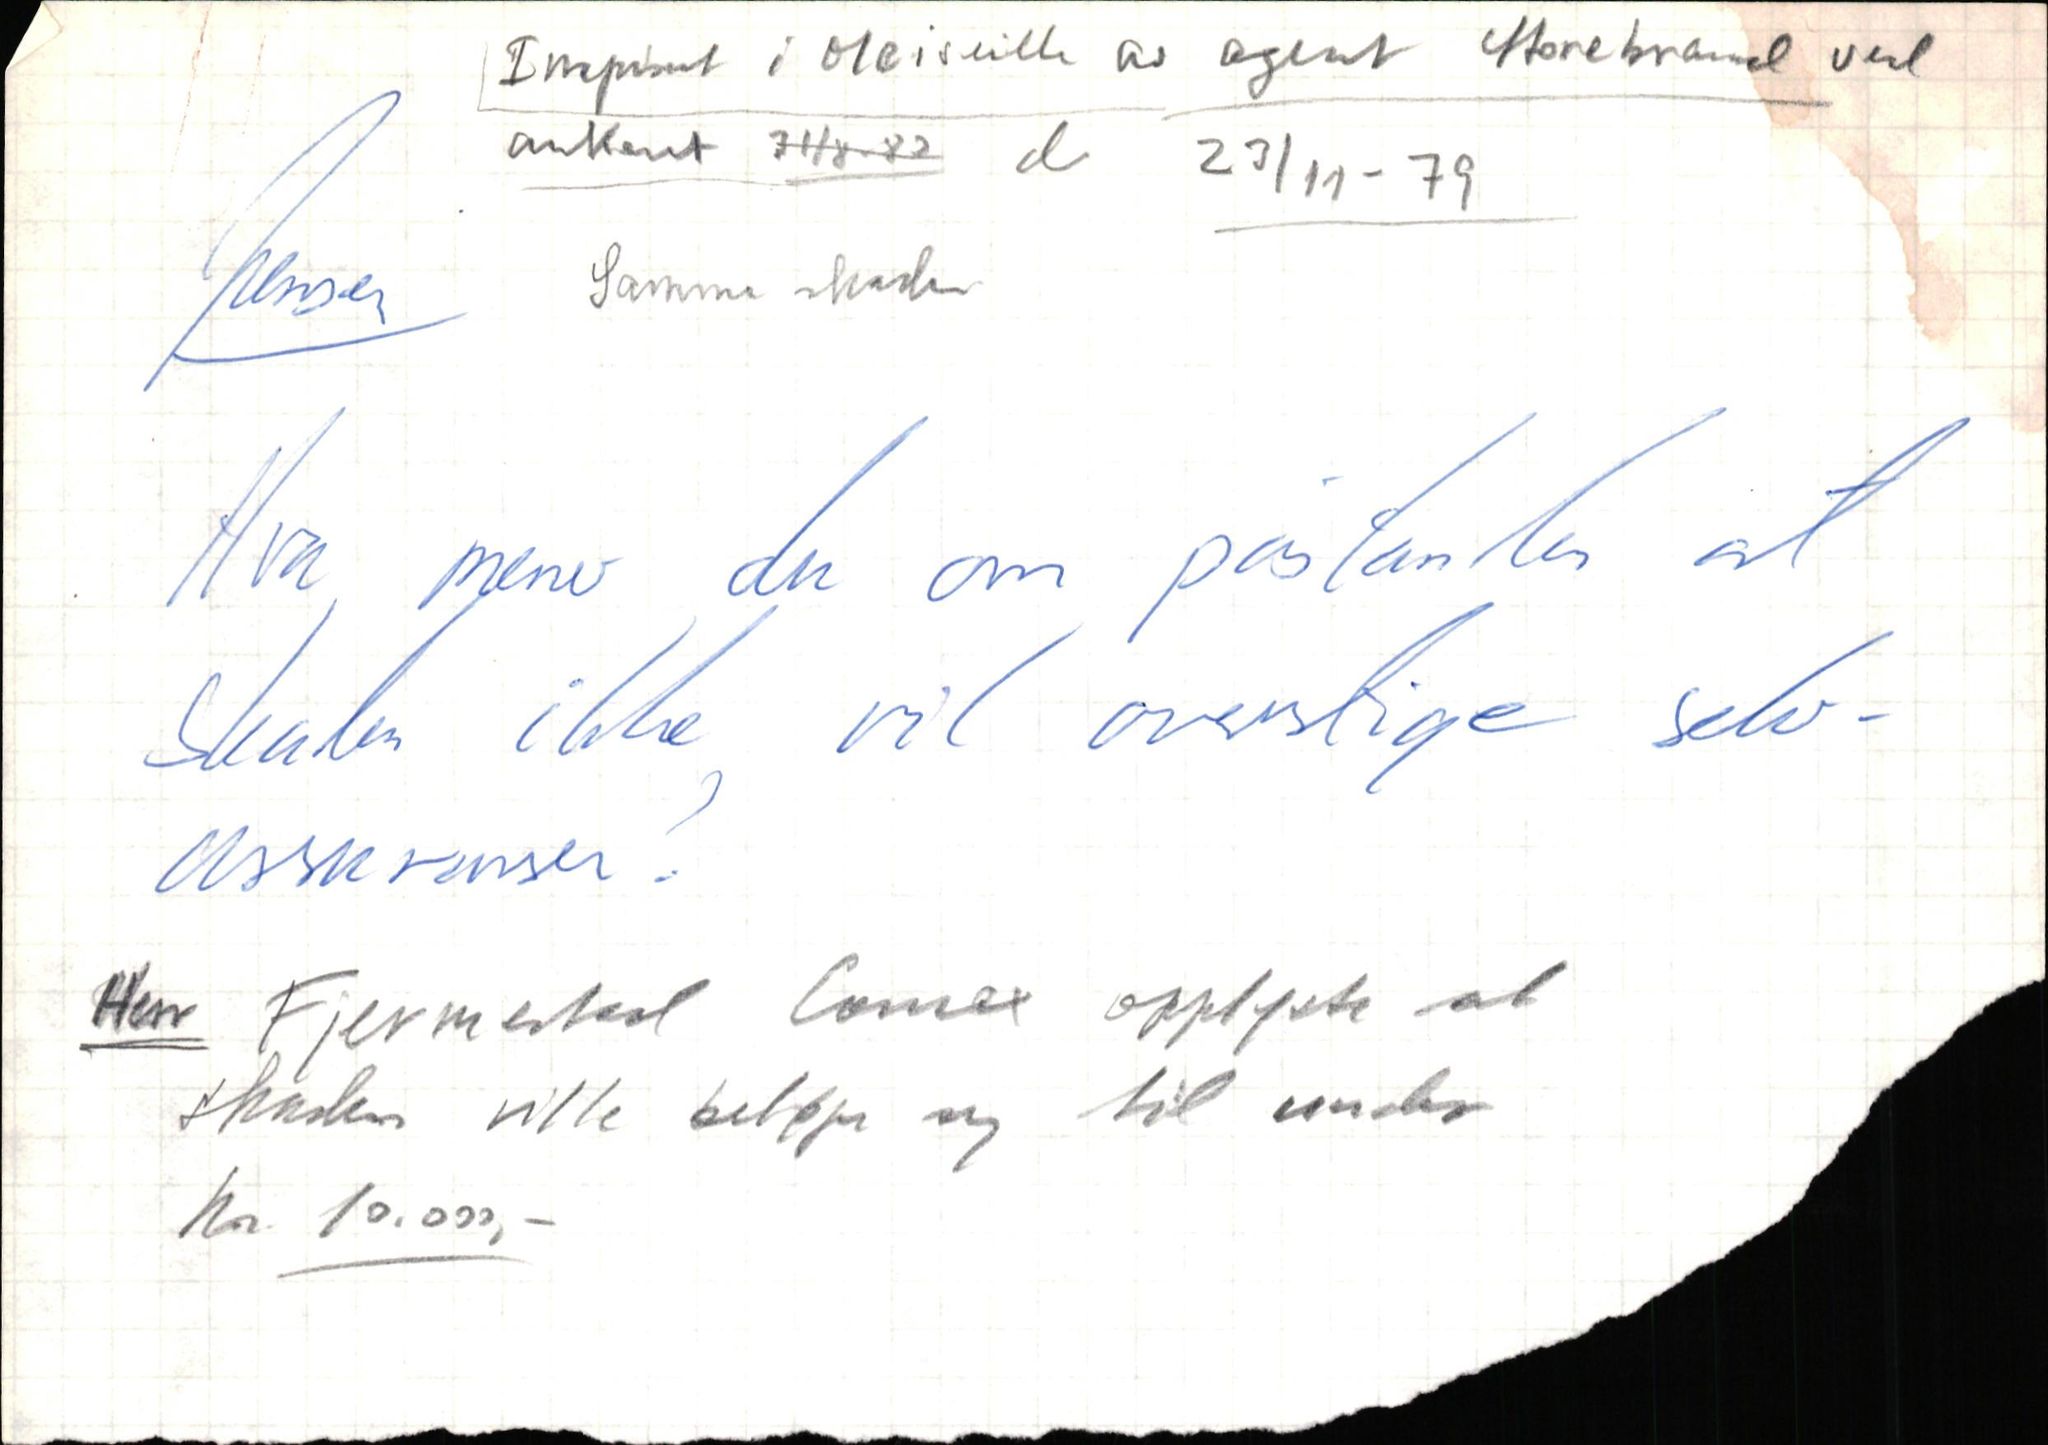 Inspisert i Marseille av agent Storebrand ved
ankomst 31/8-82 d 23/11-79
Jensen Samme skaden
Hva mener du om påstanden at
skaden ikke vil overstige selv-
assuransen?
Herr Fjermestad Comex opplyste at
skaden ville beløpe seg til under
kr. 10.000,-